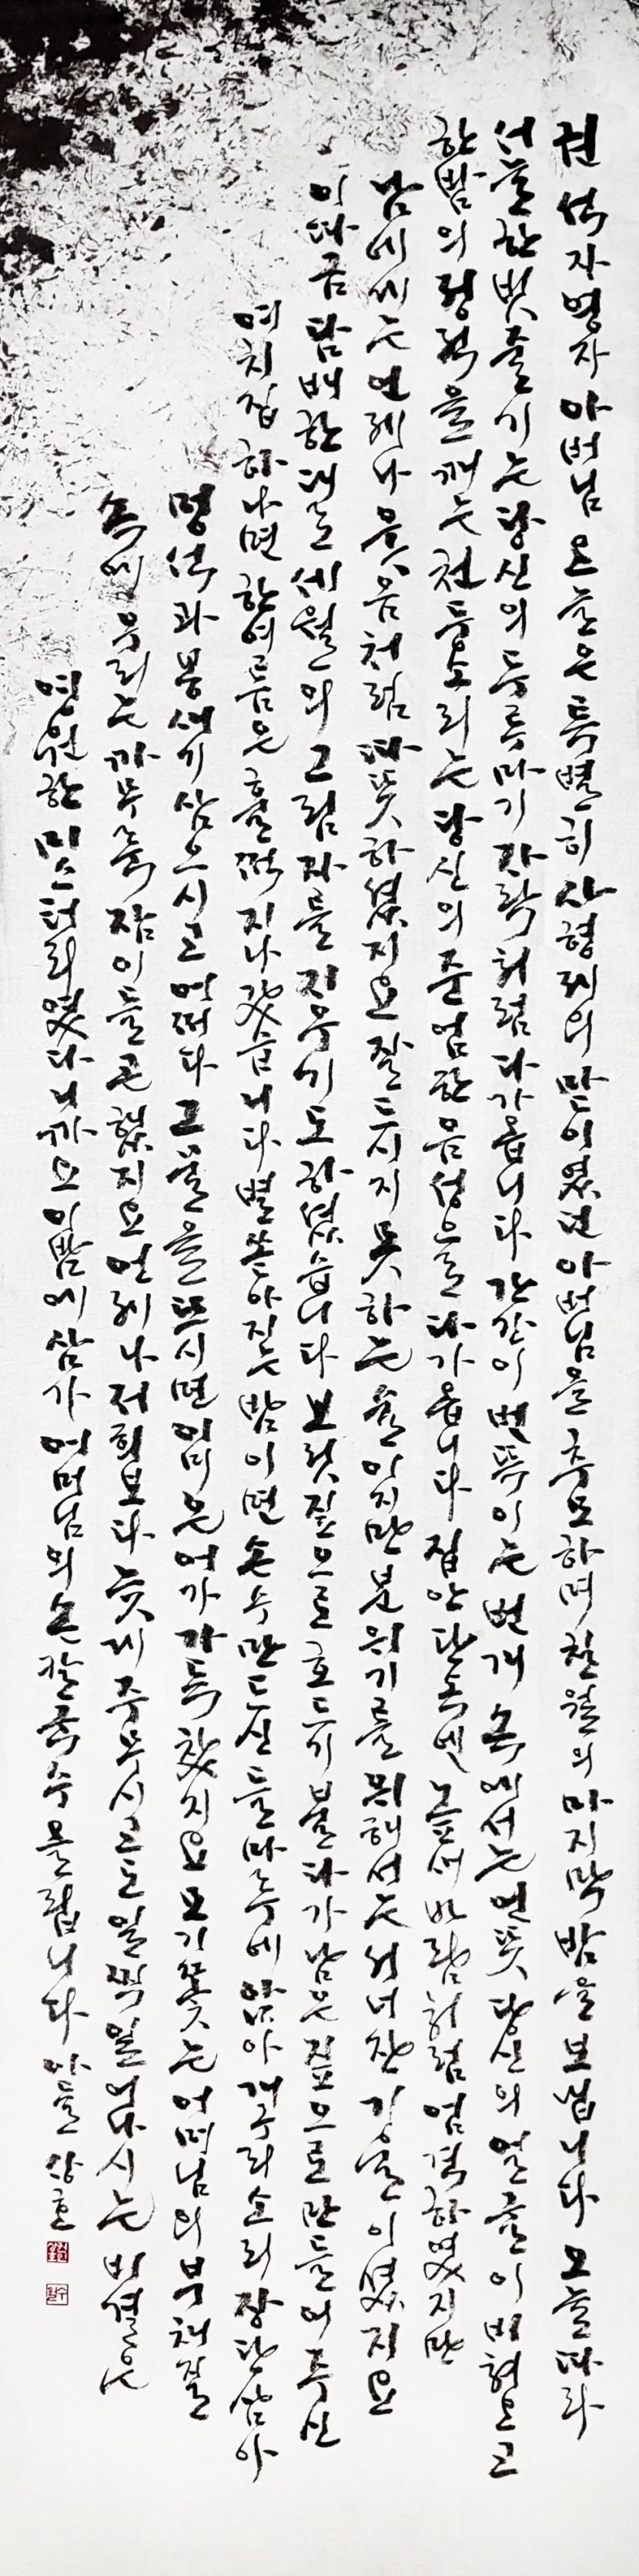 권 석자 영자 아버님 오늘은 특별히 삼형제의 맏이였던 아버님을 추모하며 칠월의 마지막 밤을 보냅니다 오늘따라
서늘한 벗 즐기는 당신의 두루마기 자락처럼 다가옵니다 간간이 번뜩이는 번개 속에서는 언뜻 당신의 얼굴이 비쳐오고
한밤의 정적을 깨는 천둥소리는 당신의 준엄한 음성으로 다가옵니다 집안 단속엔 늘 새벽바람처럼 엄격하였지만
남에게는 언제나 웃음처럼 따뜻하였지요 잘 드시지 못하는 술이지만 분위기를 위해서는 서너잔 기울이셨지요
이따금 담배 한 대로 세월의 그림자를 지우기도 하셨습니다 보릿짚으로 호드기 불다가 남은 짚으로 만들어 주신
여치집 하나면 한여름은 훌쩍 지나갔습니다 별 쏟아지는 밤이면 손수 만드신 들마루에 앉아 개구리 소리 장단 삼아
멍석과 봉새기 삼으시고 어쩌다 그물을 뜨시면 이미 은어가 가득 찼지요 모기 쫓는 어머님의 부채질
속에 우리는 까무룩 잠이 들곤 했지요 언제나 저희보다 늦게 주무시고도 일찍 일어나시는 비결은
영원한 미스터리였다니까요 이 밤에 삼가 어머님의 손칼국수 올립니다 아들 상호